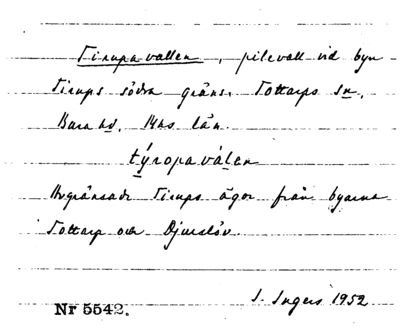 Tirupavallen, pilevall vid byn
Tirups södra gräns. Tottarps sn,
Bara hd. Mhs län.
týropaválen
Avgränsade Tirups ägor från byarna
Tottarp och Djurslöv.
I. Ingers 1952
Nr 5542.